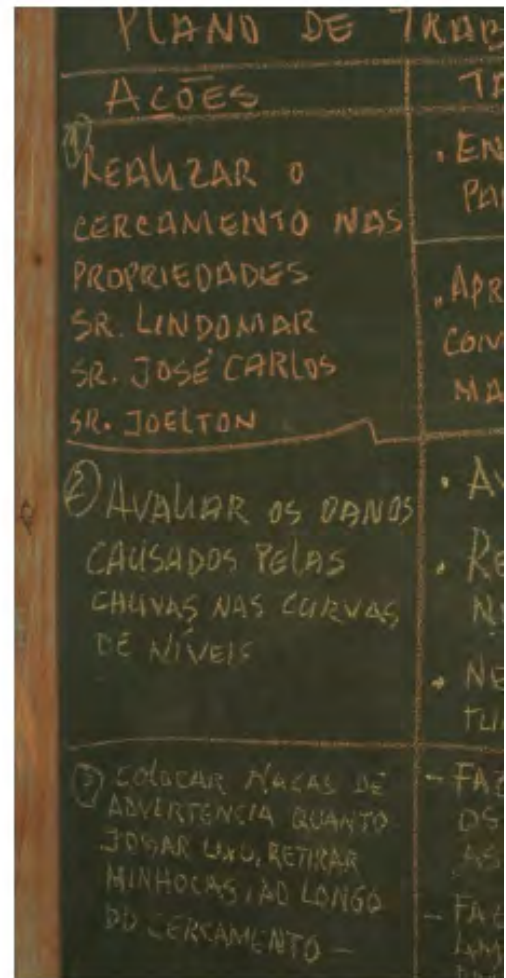 PLANO DE TRAB
AÇÕES
TA
① REALIZAR O
CERCAMENTO NAS
PROPRIEDADES
SR. LINDOMAR
SR. JOSÉ CARLOS
SR. JOELTON
• EN
PA
• APR
CON
MA
② AVALIAR OS DANOS
CAUSADOS PELAS
CHUVAS NAS CURVAS
DE NÍVEIS
• AV
• RE
• NE
③ COLOCAR PLACAS DE
ADVERTENCIA QUANTO
JOGAR LIXO, RETIRAR
MINHOCAS, AO LONGO
DO CERCAMENTO -
- FAZ
OS
AS
- FAZ